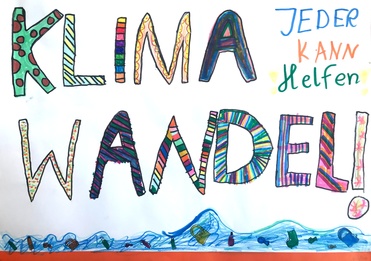 KLIMA
WANDEL!
JEDER
KANN
Helfen